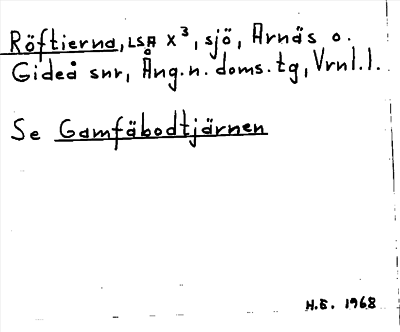 Röftierna, LSA X³, sjö, Arnäs o.
Gideå snr, Ång. n. doms. tg, Vrnl. l.
Se Gamfäbodtjärnen
H.E. 1968